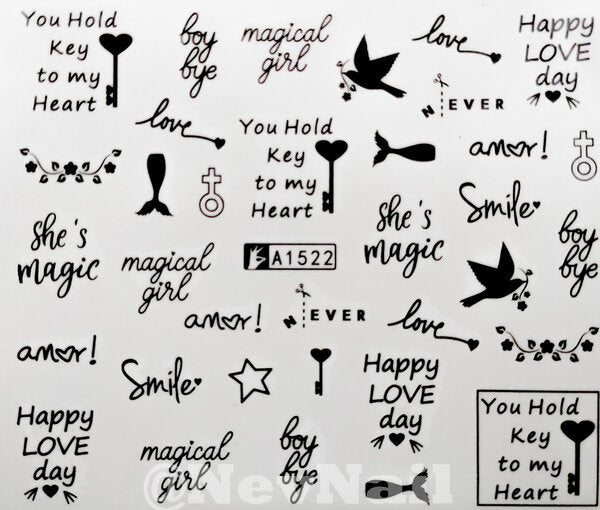 You Hold
Key
to my
Heart
boy
bye
magical
girl
love
Happy
LOVE
day
N EVER
love
You Hold
Key
to my
Heart
amor!
she's
magic
magical
girl
A1522
she's
magic
Smile
boy
bye
amor!
N EVER
love
amor!
Smile
Happy
LOVE
day
Happy
LOVE
day
magical
girl
boy
bye
You Hold
Key
to my
Heart
@NevNail